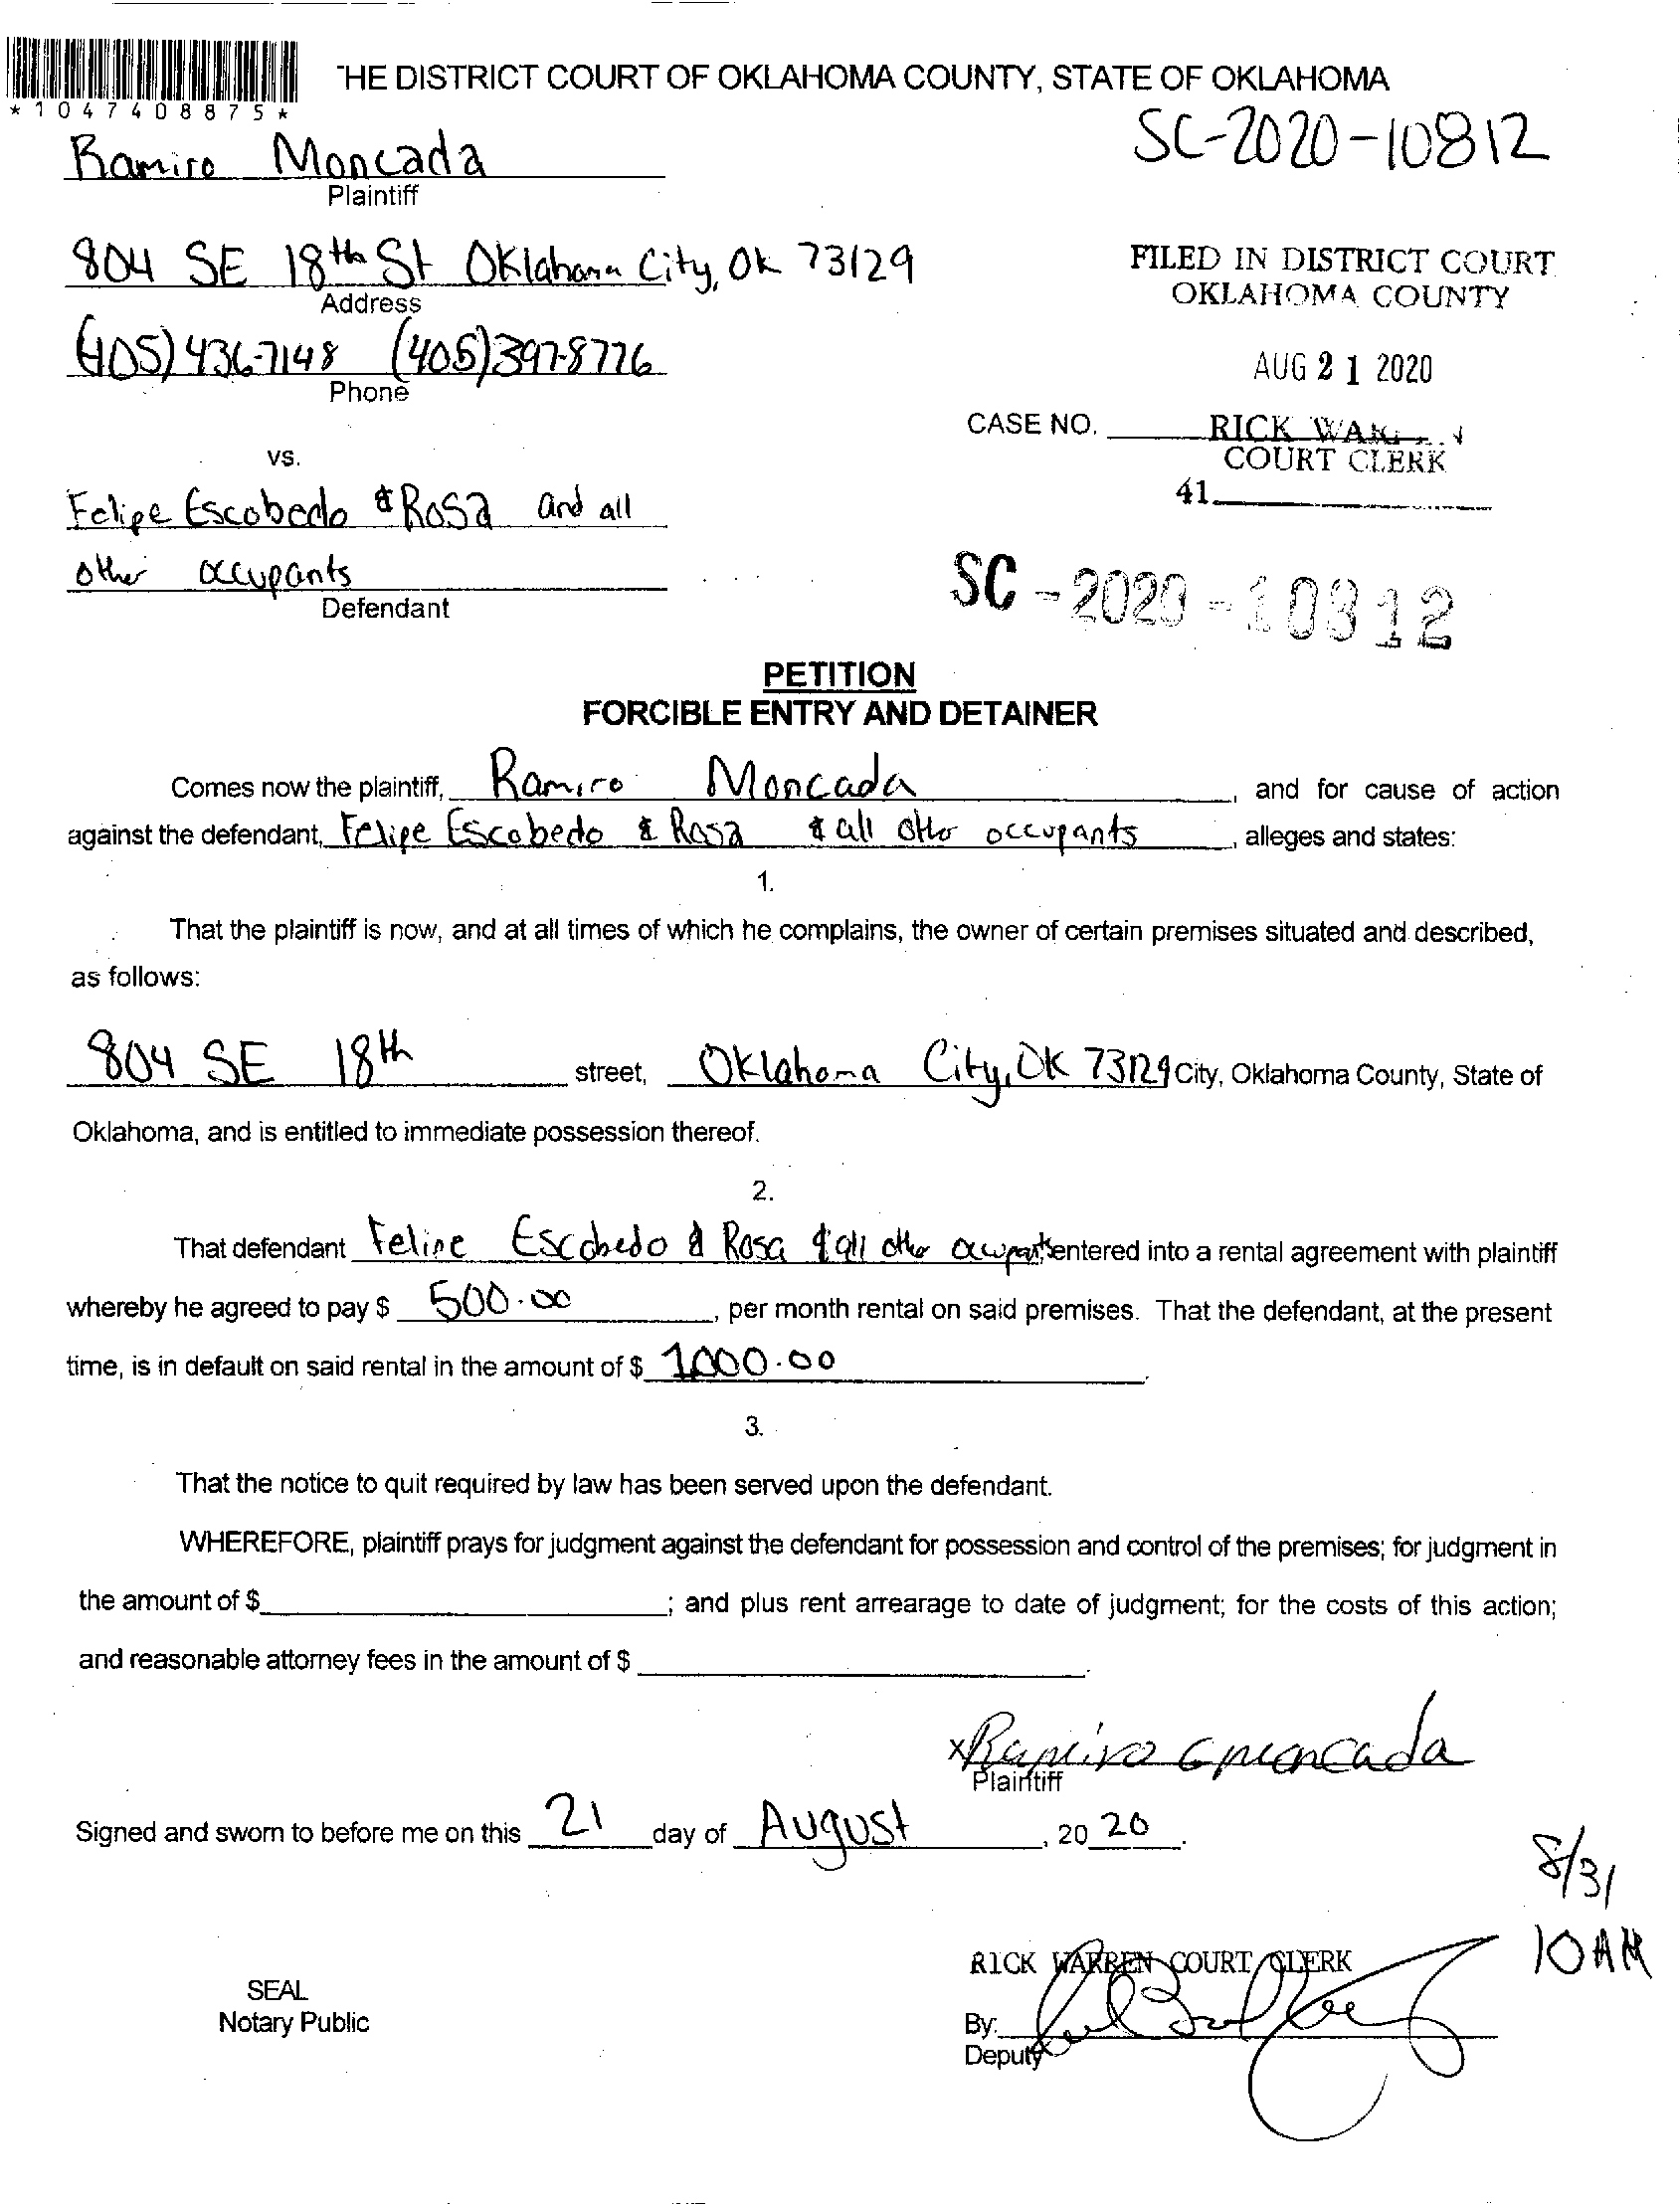 *1047408875*
THE DISTRICT COURT OF OKLAHOMA COUNTY, STATE OF OKLAHOMA
SC-2020-10812
Ramiro Moncada
Plaintiff
804 SE 18th St Oklahoma City, Ok 73129
Address
FILED IN DISTRICT COURT
OKLAHOMA COUNTY
(405) 436-7148 (405) 397-8776
Phone
AUG 21 2020
CASE NO.
RICK WARREN
COURT CLERK
vs.
41
Felipe Escobedo & Rosa and all
other occupants
Defendant
SC-2020-10812
PETITION
FORCIBLE ENTRY AND DETAINER
Comes now the plaintiff, Ramiro Moncada, and for cause of action
against the defendant, Felipe Escobedo & Rosa & all other occupants, alleges and states:
1.
That the plaintiff is now, and at all times of which he complains, the owner of certain premises situated and described,
as follows:
804 SE 18th street, Oklahoma City, OK 73129 City, Oklahoma County, State of
Oklahoma, and is entitled to immediate possession thereof.
2.
That defendant Felipe Escobedo & Rosa & all other occupants entered into a rental agreement with plaintiff
whereby he agreed to pay $ 500.00, per month rental on said premises. That the defendant, at the present
time, is in default on said rental in the amount of $ 1000.00.
3.
That the notice to quit required by law has been served upon the defendant.
WHEREFORE, plaintiff prays for judgment against the defendant for possession and control of the premises; for judgment in
the amount of $ ; and plus rent arrearage to date of judgment; for the costs of this action;
and reasonable attorney fees in the amount of $ .
x Ramiro G Moncada
Plaintiff
Signed and sworn to before me on this 21 day of August, 20 20.
8/31
10AM
RICK WARREN COURT CLERK
SEAL
Notary Public
By:
Deputy